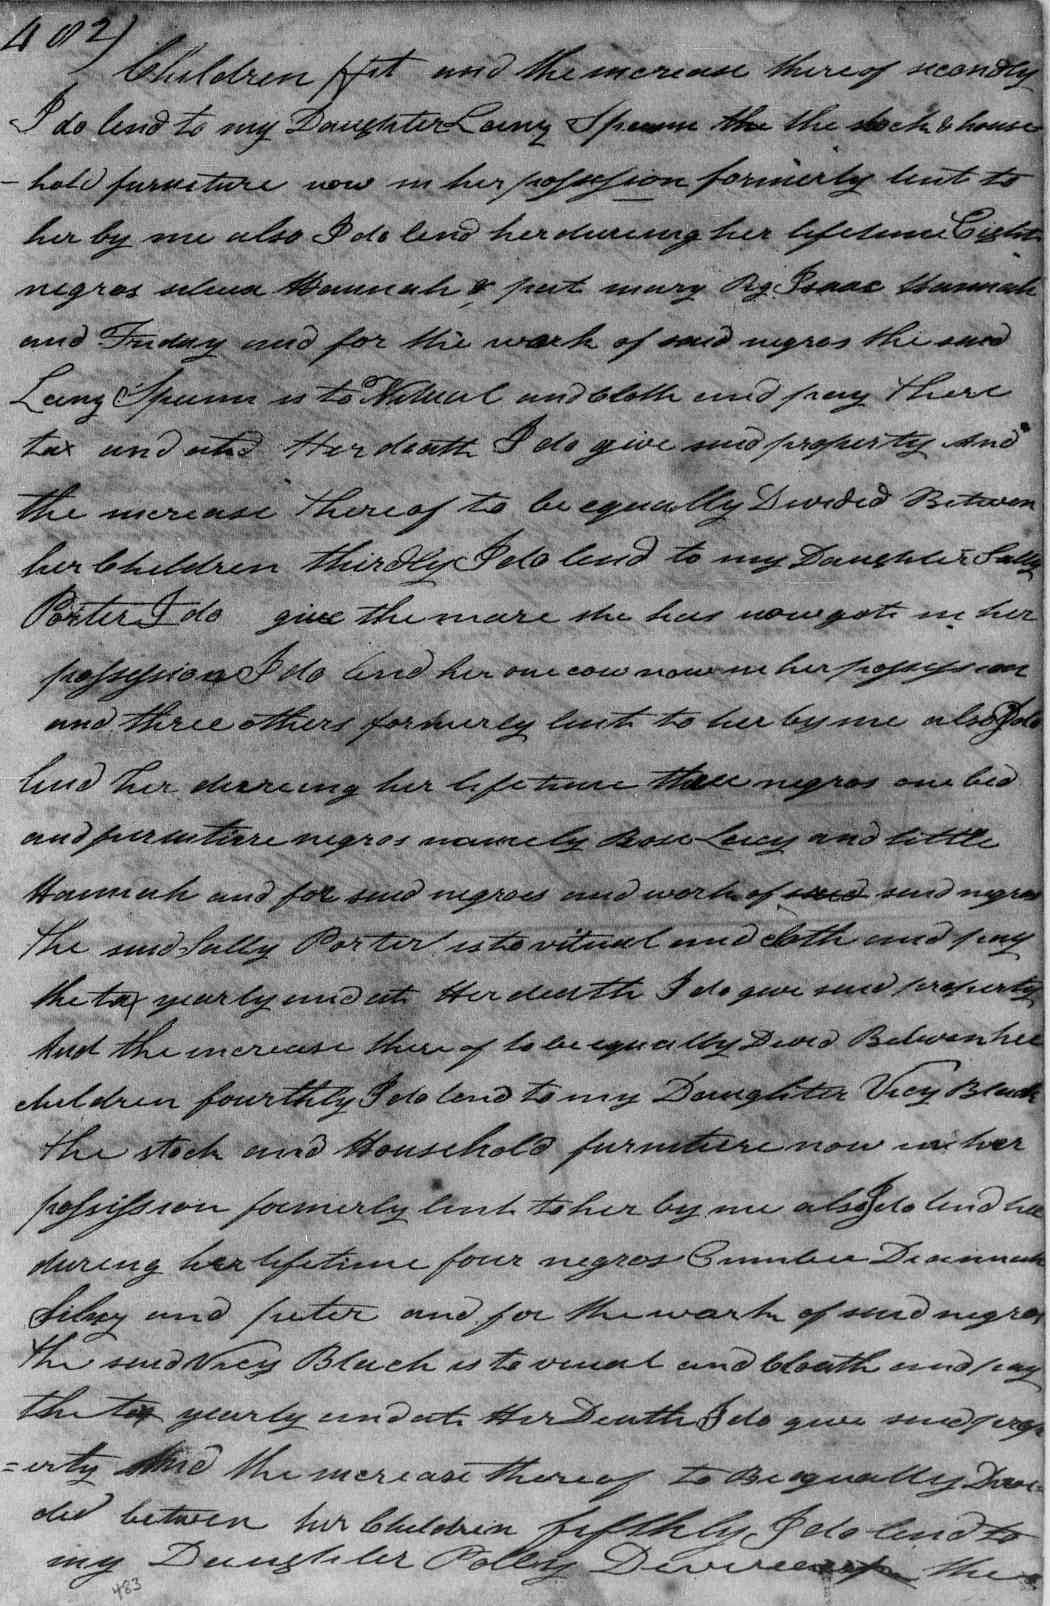 402)
Children and the increase thereof secondly
I do lend to my Daughter Lany Spann the the stock & house
-hold furniture now in her possession formirly lent to
her by me also I do lend her dureing her lifetime Eight
negros Hannah & mary Isaac Hannah
and Friday and for the work of said negros the said
Lany Spann is to Vitual and Cloth and pay there
tax and at Her death I do give said property And
the increase thereof to be equally Divided Betwen
her Children thirdly I do lend to my Daughter Sally
Porter I do give the mare she has now got in her
possession I do lend her one cow now in her possession
and three others formerly lent to her by me also I do
lend her dureing her lifetime three negros one bed
and furnitiure negros namely Rose Lucy and little
Hannah and for said negroes and work of said said negros
the said Sally Porter is to vitual and cloth and pay
the tax yearly and at Her death I do give said property
And the increase there of to be equally Devid Betwen her
children fourthly I do lend to my Daughter Vicy Black
the stock and Household furniture now in her
possission formerly lent to her by me also I do lend her
during her lifetime four negros
Silvy and peter and for the work of said negros
the said Vicy Black is to vitual and Cloath and pay
the tax yearly and at Her Death I do give said prop
=erty And the increase thereof to Be equally Devi=
ded betwen her Children fifthly I do lend to
my Daughter Polly the
483